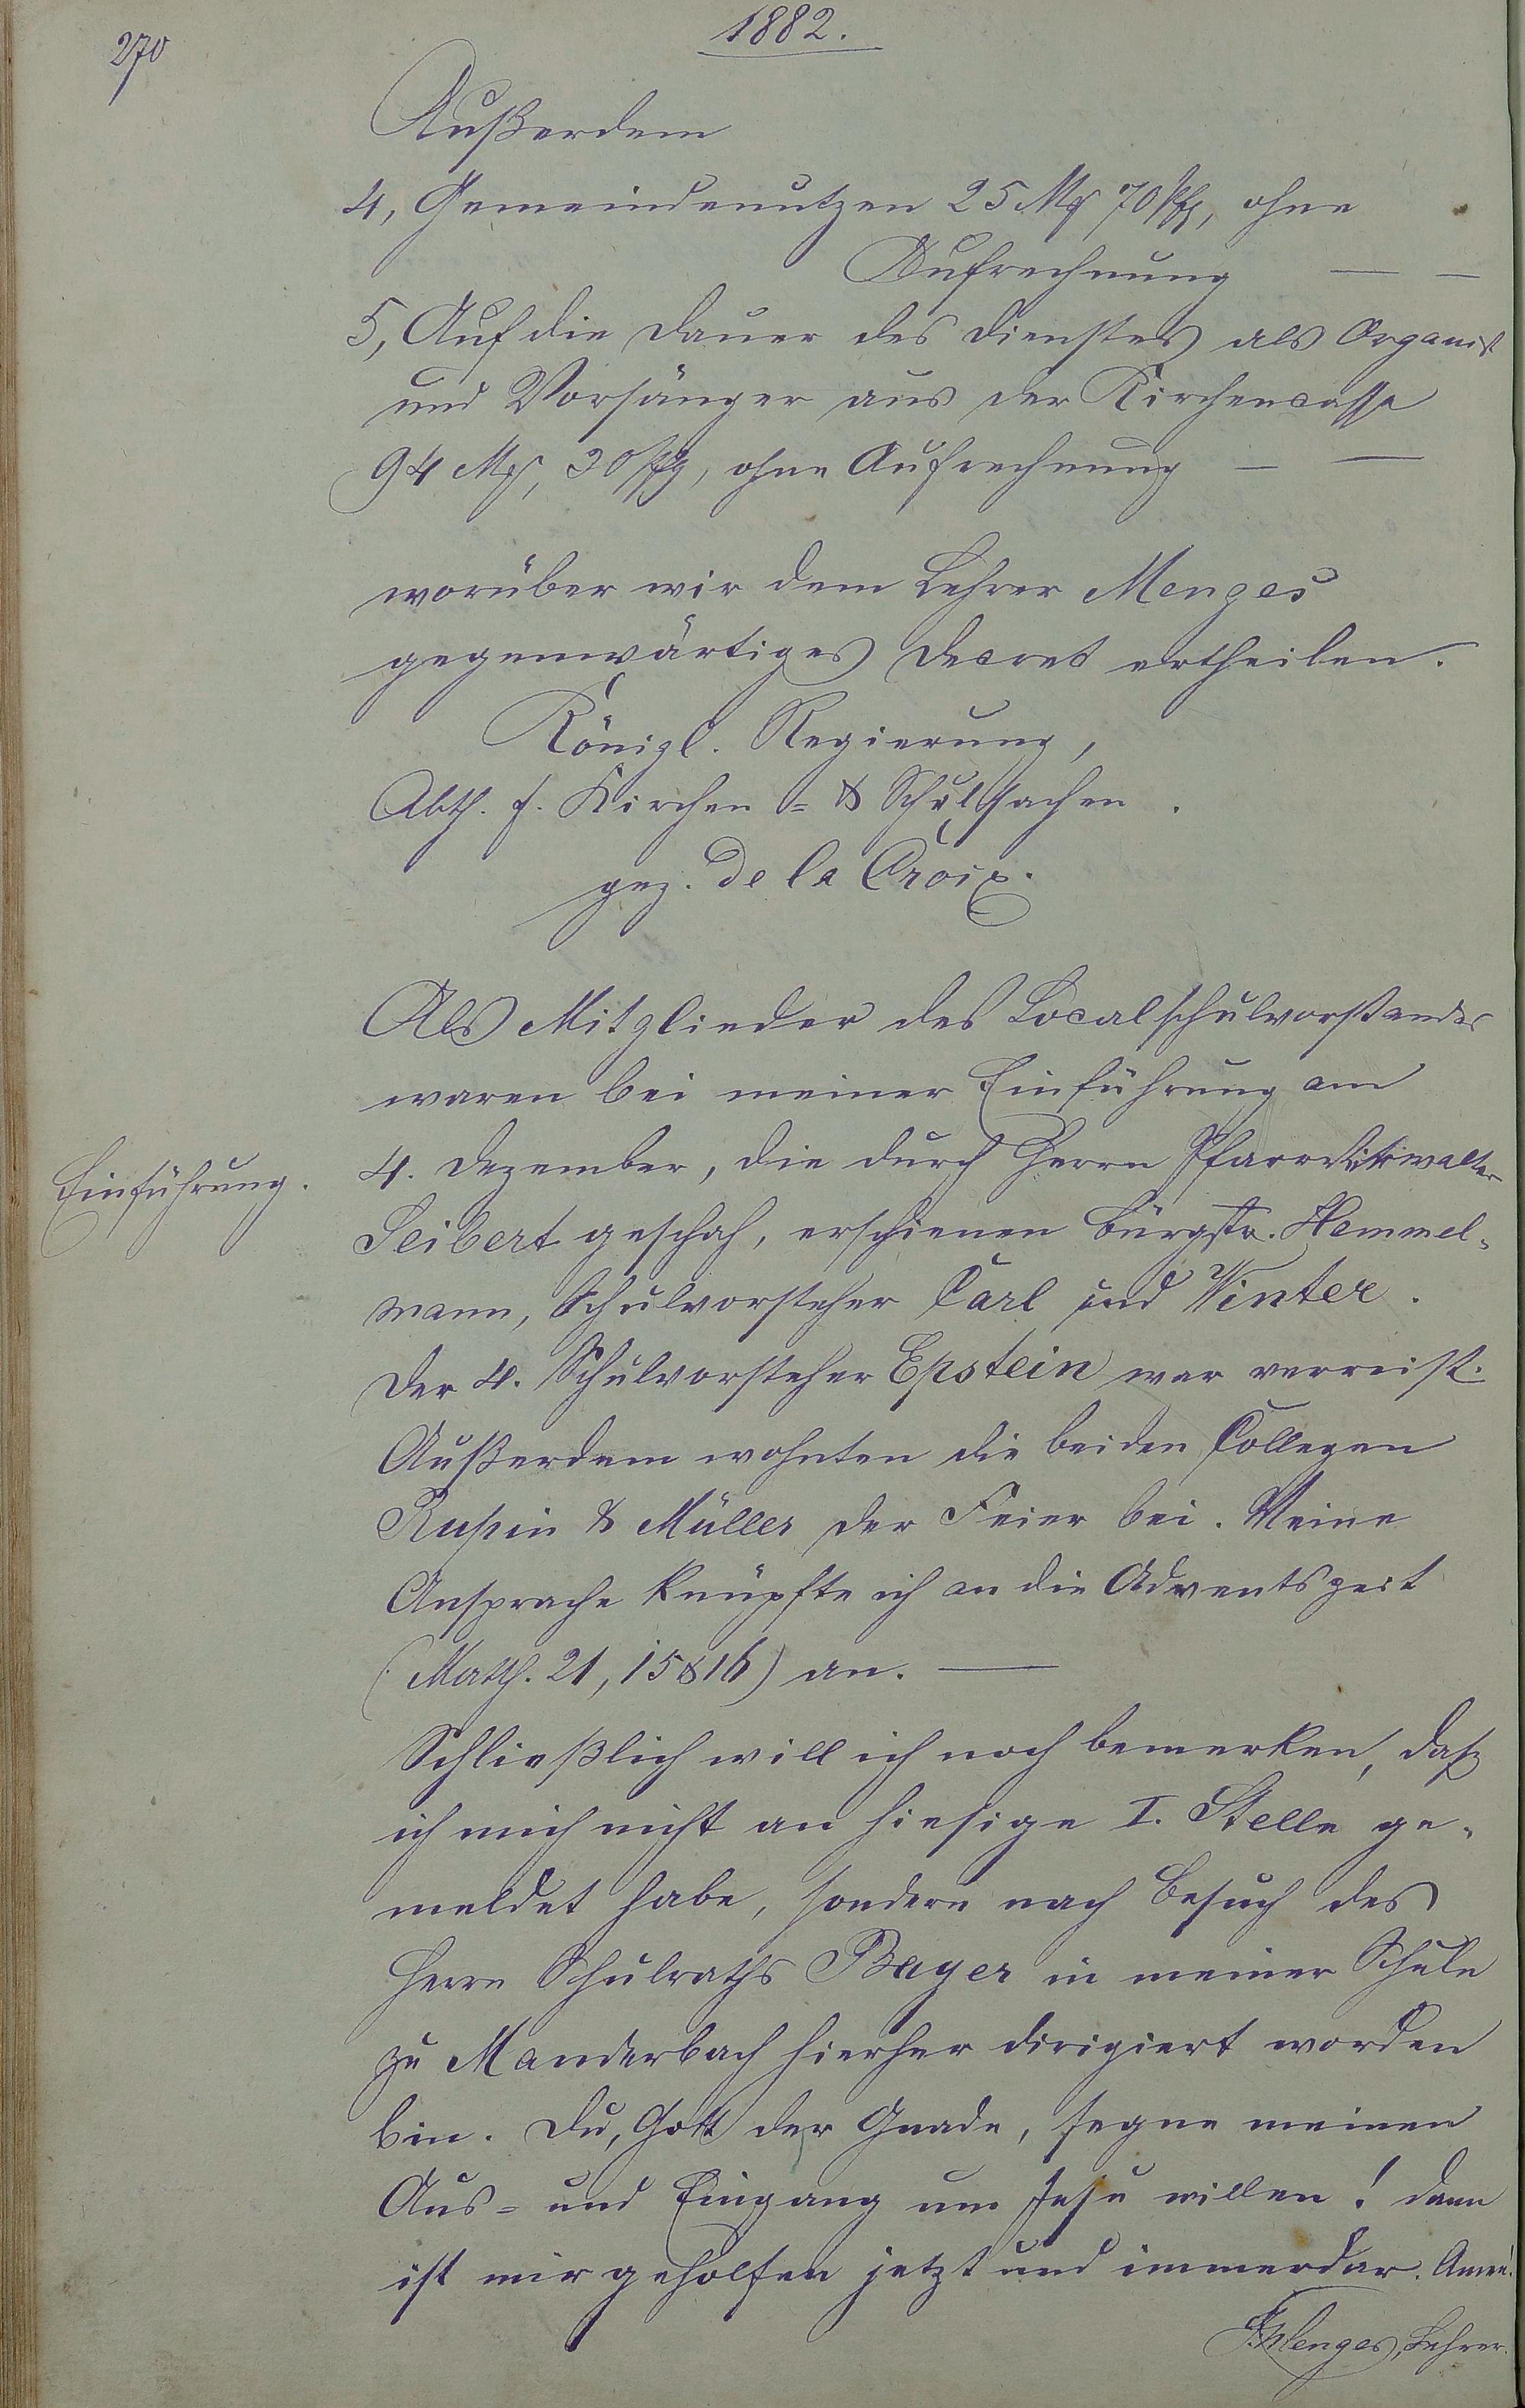 270
1882.
Außerdem
4, Gemeindenutzen 25 Mk 70 Pfg, ohne
Aufrechnung — —
5, Auf die Dauer des Dienstes als Organist
und Vorsänger aus der Kirchencasse
94 Mk, 30 Pfg, ohne Aufrechnung — —
worüber wir dem Lehrer Menges
gegenwärtiges Decret ertheilen.
Königl. Regierung,
Abth. f. Kirchen- & Schulsachen.
gez. de la Croix.
Als Mitglieder des Localschulvorstandes
waren bei meiner Einführung am
Einführung.
4. Dezember, die durch Herrn
Seibert geschah, erschienen Bürgstr. Hemmel-
mann, Schulvorsteher Carl und Winter.
Der 4. Schulvorsteher Epstein war verreist.
Außerdem wohnten die beiden Collegen
Rupin & Müller der Feier bei. Meine
Ansprache knüpfte ich an die Adventszeit
(Matth. 21, 15 & 16) an. —
Schließlich will ich noch bemerken, daß
ich mich nicht an hiesige I. Stelle ge-
meldet habe, sondern nach Besuch des
Herrn Schulraths Bayer in meiner Schule
zu Manderbach hierher dirigiert worden
bin. Du, Gott der Gnade, segne meinen
Aus- und Eingang um Jesu willen! dann
ist mir geholfen jetzt und immerdar. Amen!
Menges, Lehrer.